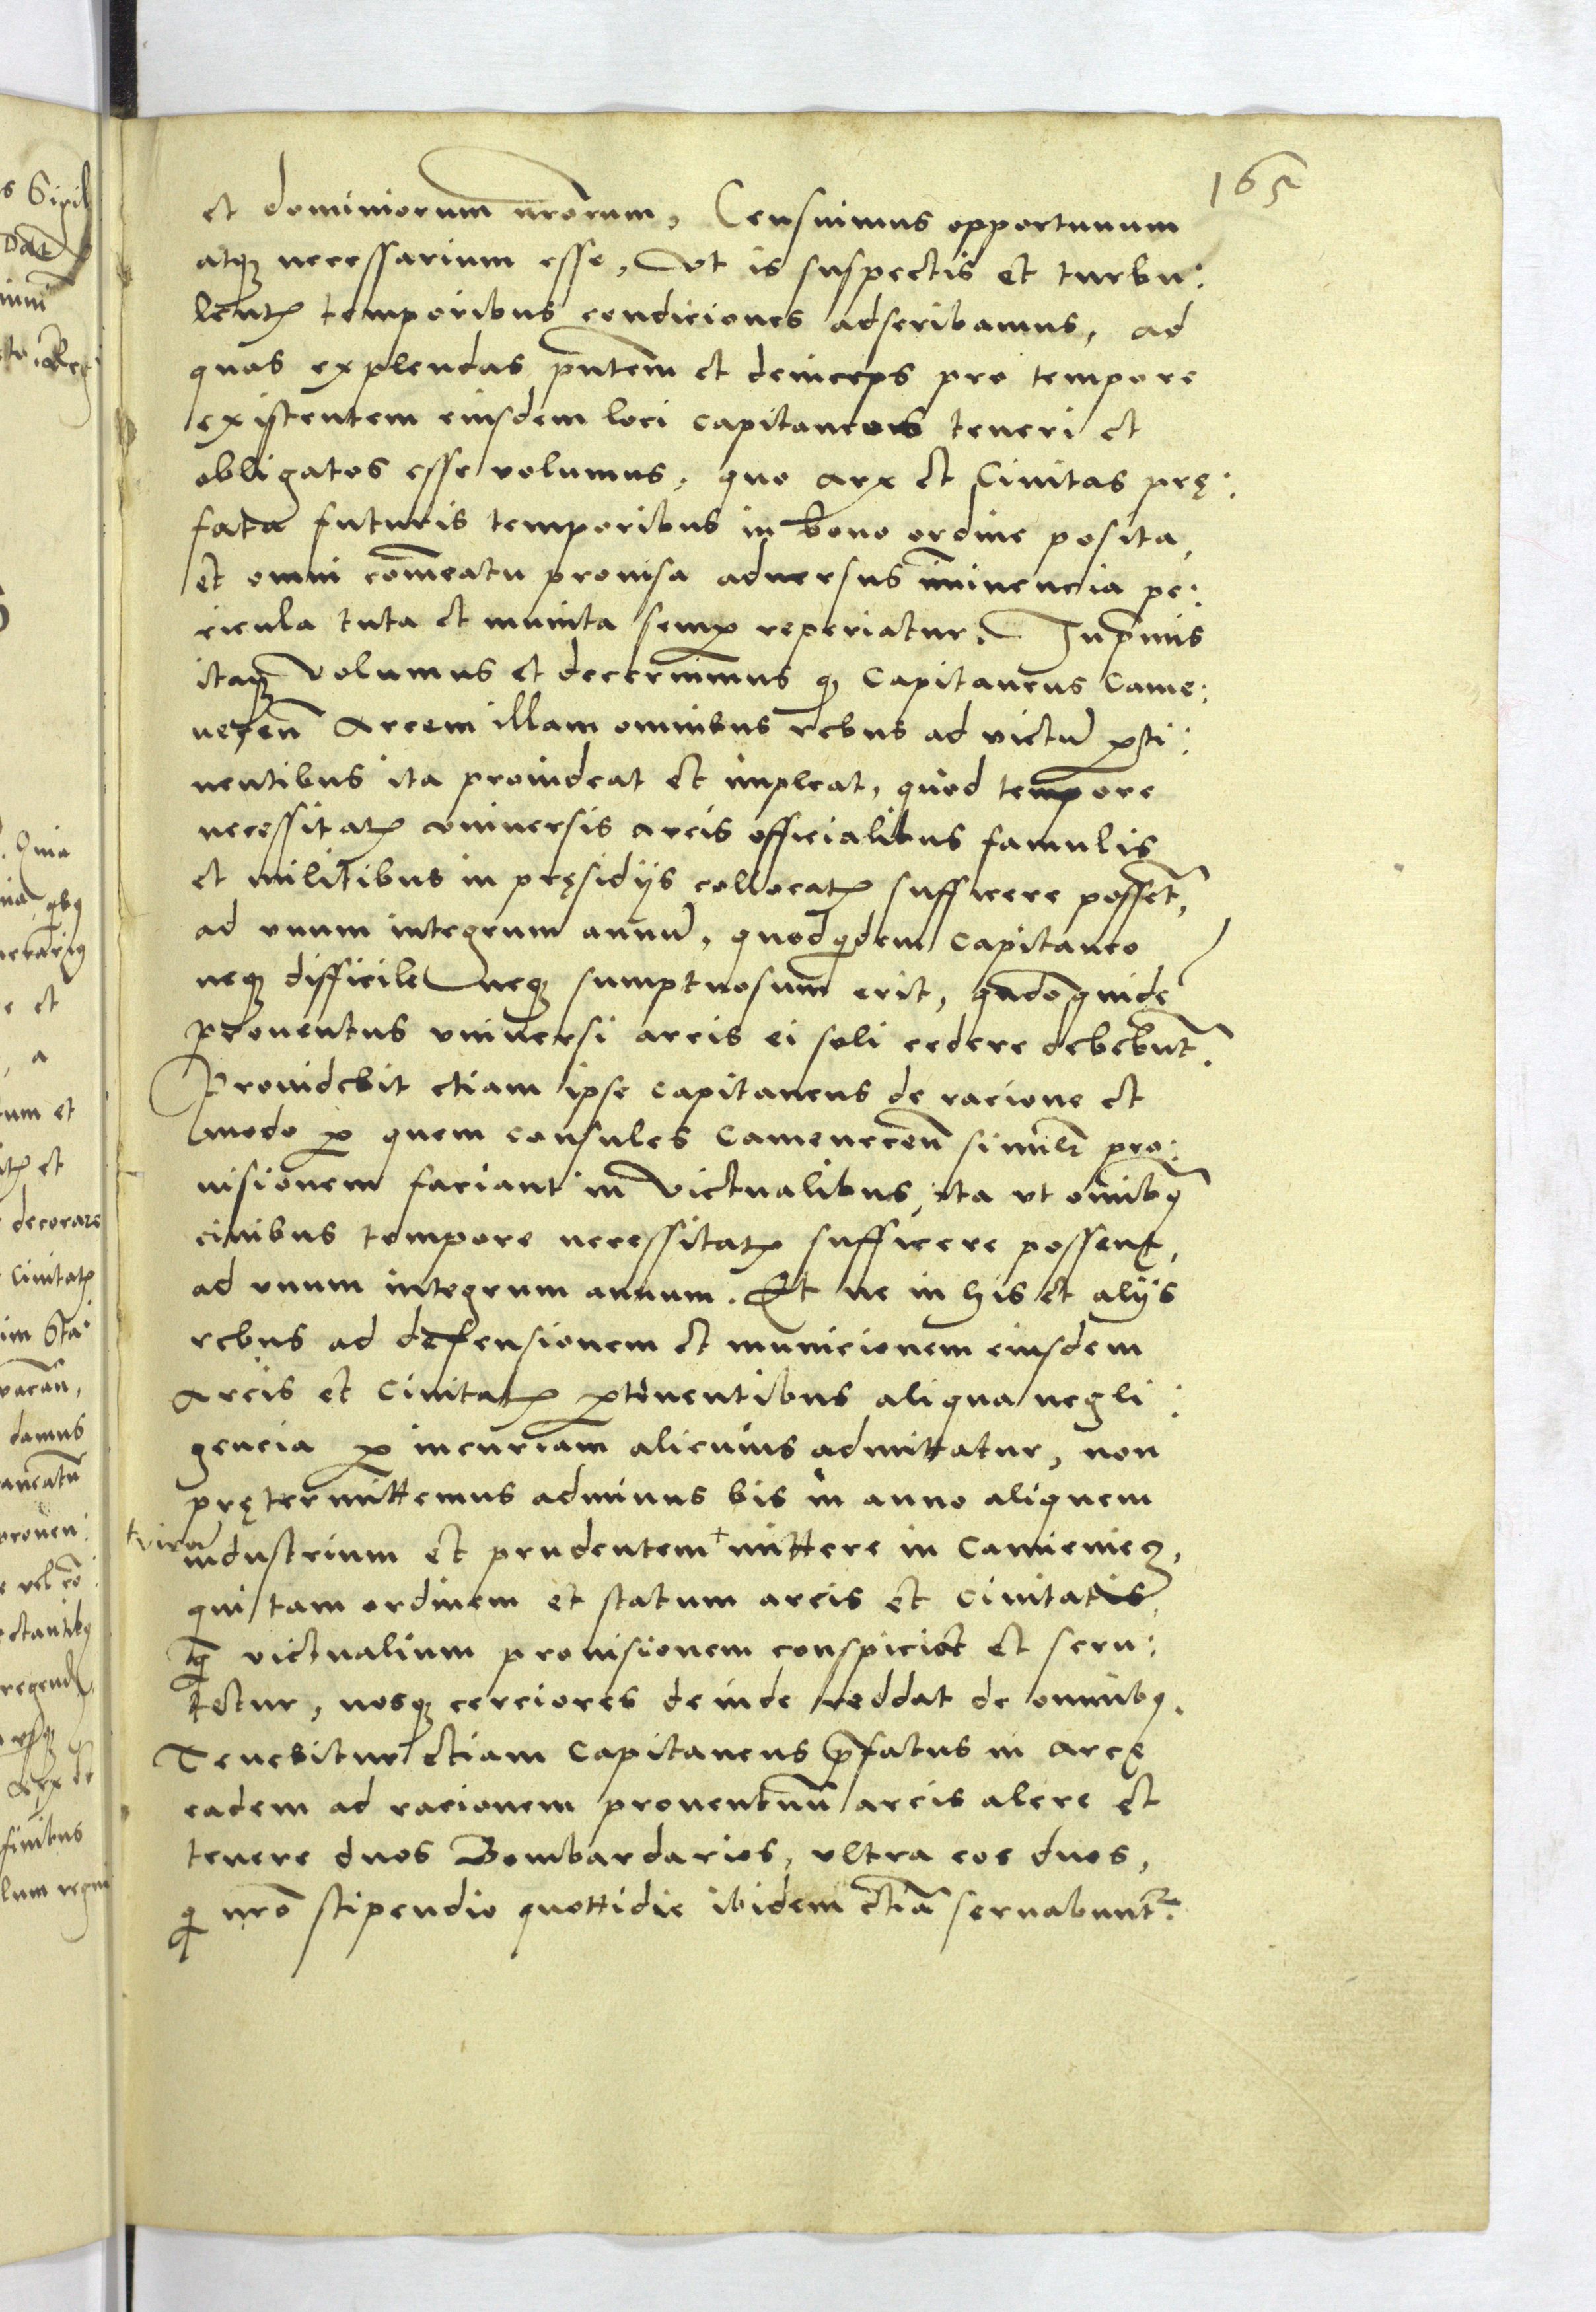 165
et dominiorum nr̃orum, Censuimus opportunum
atq3 necessarium esse, Vt is suspectis et turbu:
lentꝭ temporibus condiciones adscribamus, ad
quas explendas pñtem et deinceps pro tempore
existentem eiusdem loci capitaneos teneri et
obligatos esse volumus, quo arx et Ciuitas prę:
fata futuris temporibus in bono ordine posita,
et omni com̃eatu prouisa aduersus im̃inencia pe:
ricula tuta et munita semꝑ reperiatur. Inprimis
itaq3 Volumus et decernim̃us q3 Capitaneus Came:
neceñ Arcem illam omnibus rebus ad victũ ꝑti:
nentibus ita prouideat et impleat, quod tempore
necessitatꝭ vniuersis arcis officialibus famulis
et militibus in pręsidijs collocatꝭ sufficere possēt,
ad vnum integrum annũ, quodqidem Capitaneo
neq3 difficile neq3 sumptuosum erit, qñdoquidẽ
prouentus vniuersi arcis ei soli cedere debebũt.
Prouidebit etiam ipse Capitaneus de racione et
modo ꝑ quem consules Cameneceñ similẽ pro:
uisionem faciant in Victualibus, ita vt omibꝰ
ciuibus tempore necessitatꝭ sufficere possent,
ad vnum integrum annum. Et ne in his et alijs
rebus ad defensionem et municionem eiusdem
Arcis et Ciuitatꝭ ꝑtinentibus aliqua negli:
gencia ꝑ incuriam alicuius admittatur, non
prętermittemus adminus bis in anno aliquem
+virũ
industrium et prudentem + mittere in Camieniecz,
qui tam ordinem et statum arcis et Ciuitatis,
tq̃ victualium prouisionem conspiciet et scru:
tetur, nosq3 cerciores deinde reddat de omnibꝰ.
Tenebitur etiam Capitaneus p̃fatus in arcę
eadem ad racionem prouentuũ arcis alere et
tenere duos Bombardarios, vltra eos duos,
qi nr̃o stipendio quottidie ibidem etiã seruabunt.